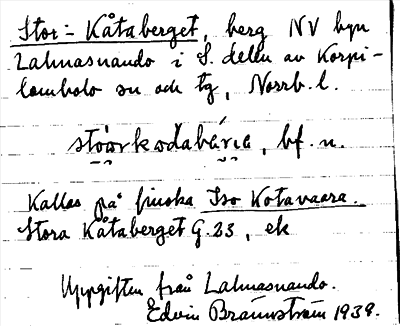 Stor-Kåtaberget, berg NV byn
Lahnasuando i S. delen av Korpi-
lombolo sn och tg, Norrb. l.
bf. n.
Kallas på finska Iso Kotavaara.
Stora Kåtaberget G. 23, ek
Uppgiften från Lahnasuando.
Edvin Brännström 1939.